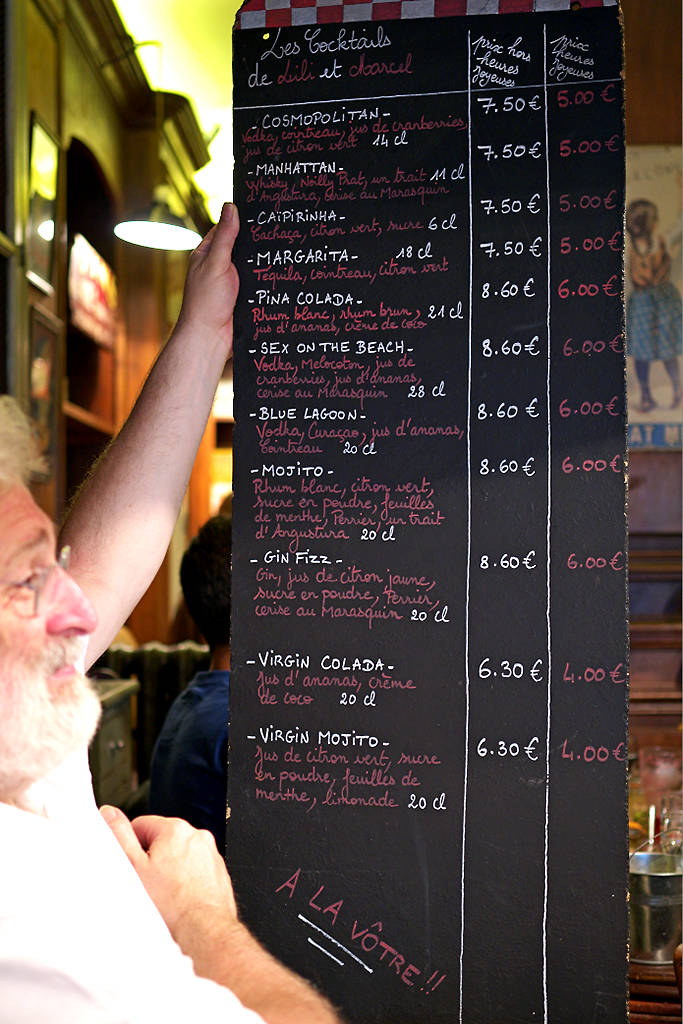 Les Cocktails
de Lili et Marcel
prix hors
heures
joyeuses
prix
heures
joyeuses
- COSMOPOLITAN - 7.50 € 5.00 €
Vodka, cointreau, jus de cranberries,
jus de citron vert 14 cl
- MANHATTAN - 7.50 € 5.00 €
Whisky, Noilly Prat, un trait 11 cl
d'Angustura, cerise au Marasquin
- CAÏPIRINHA - 7.50 € 5.00 €
Cachaça, citron vert, sucre 6 cl
- MARGARITA - 18 cl 7.50 € 5.00 €
Tequila, cointreau, citron vert
- PINA COLADA - 8.60 € 6.00 €
Rhum blanc, rhum brun, 21 cl
jus d'ananas, crème de coco
- SEX ON THE BEACH - 8.60 € 6.00 €
Vodka, Melocoton, jus de
cranberries, jus d'ananas,
cerise au Marasquin 28 cl
- BLUE LAGOON - 8.60 € 6.00 €
Vodka, Curaçao, jus d'ananas,
Cointreau 20 cl
- MOJITO - 8.60 € 6.00 €
Rhum blanc, citron vert,
sucre en poudre, feuilles
de menthe, Perrier, un trait
d'Angustura 20 cl
- GIN FIZZ - 8.60 € 6.00 €
Gin, jus de citron jaune,
sucre en poudre, Perrier,
cerise au Marasquin 20 cl
- VIRGIN COLADA - 6.30 € 4.00 €
Jus d'ananas, crème
de coco 20 cl
- VIRGIN MOJITO - 6.30 € 4.00 €
Jus de citron vert, sucre
en poudre, feuilles de
menthe, limonade 20 cl
A LA VÔTRE !!